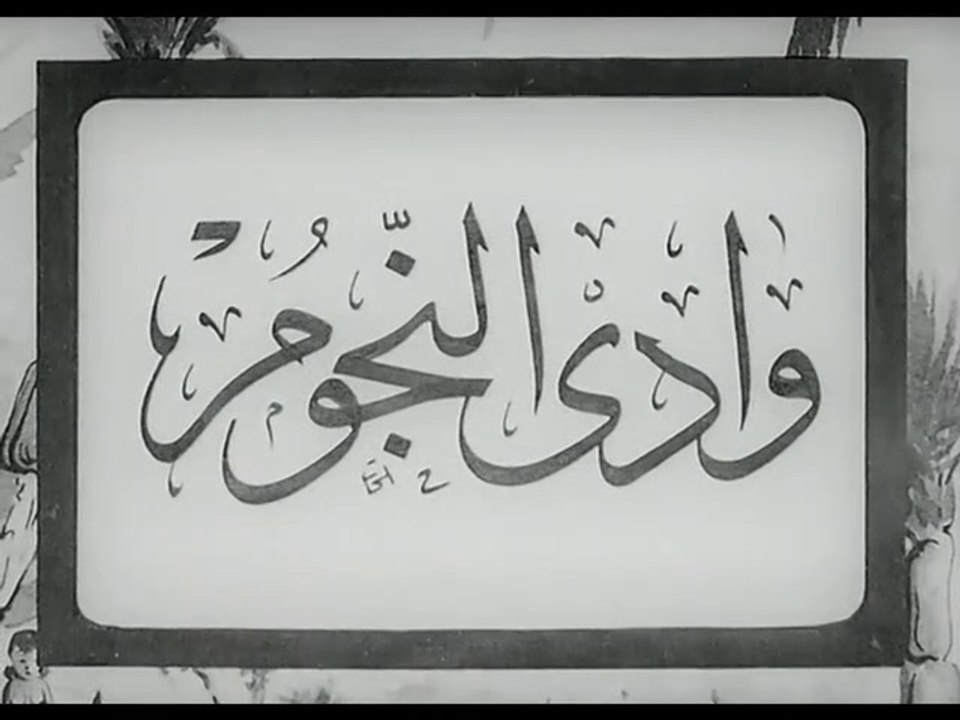 وادى النجوم